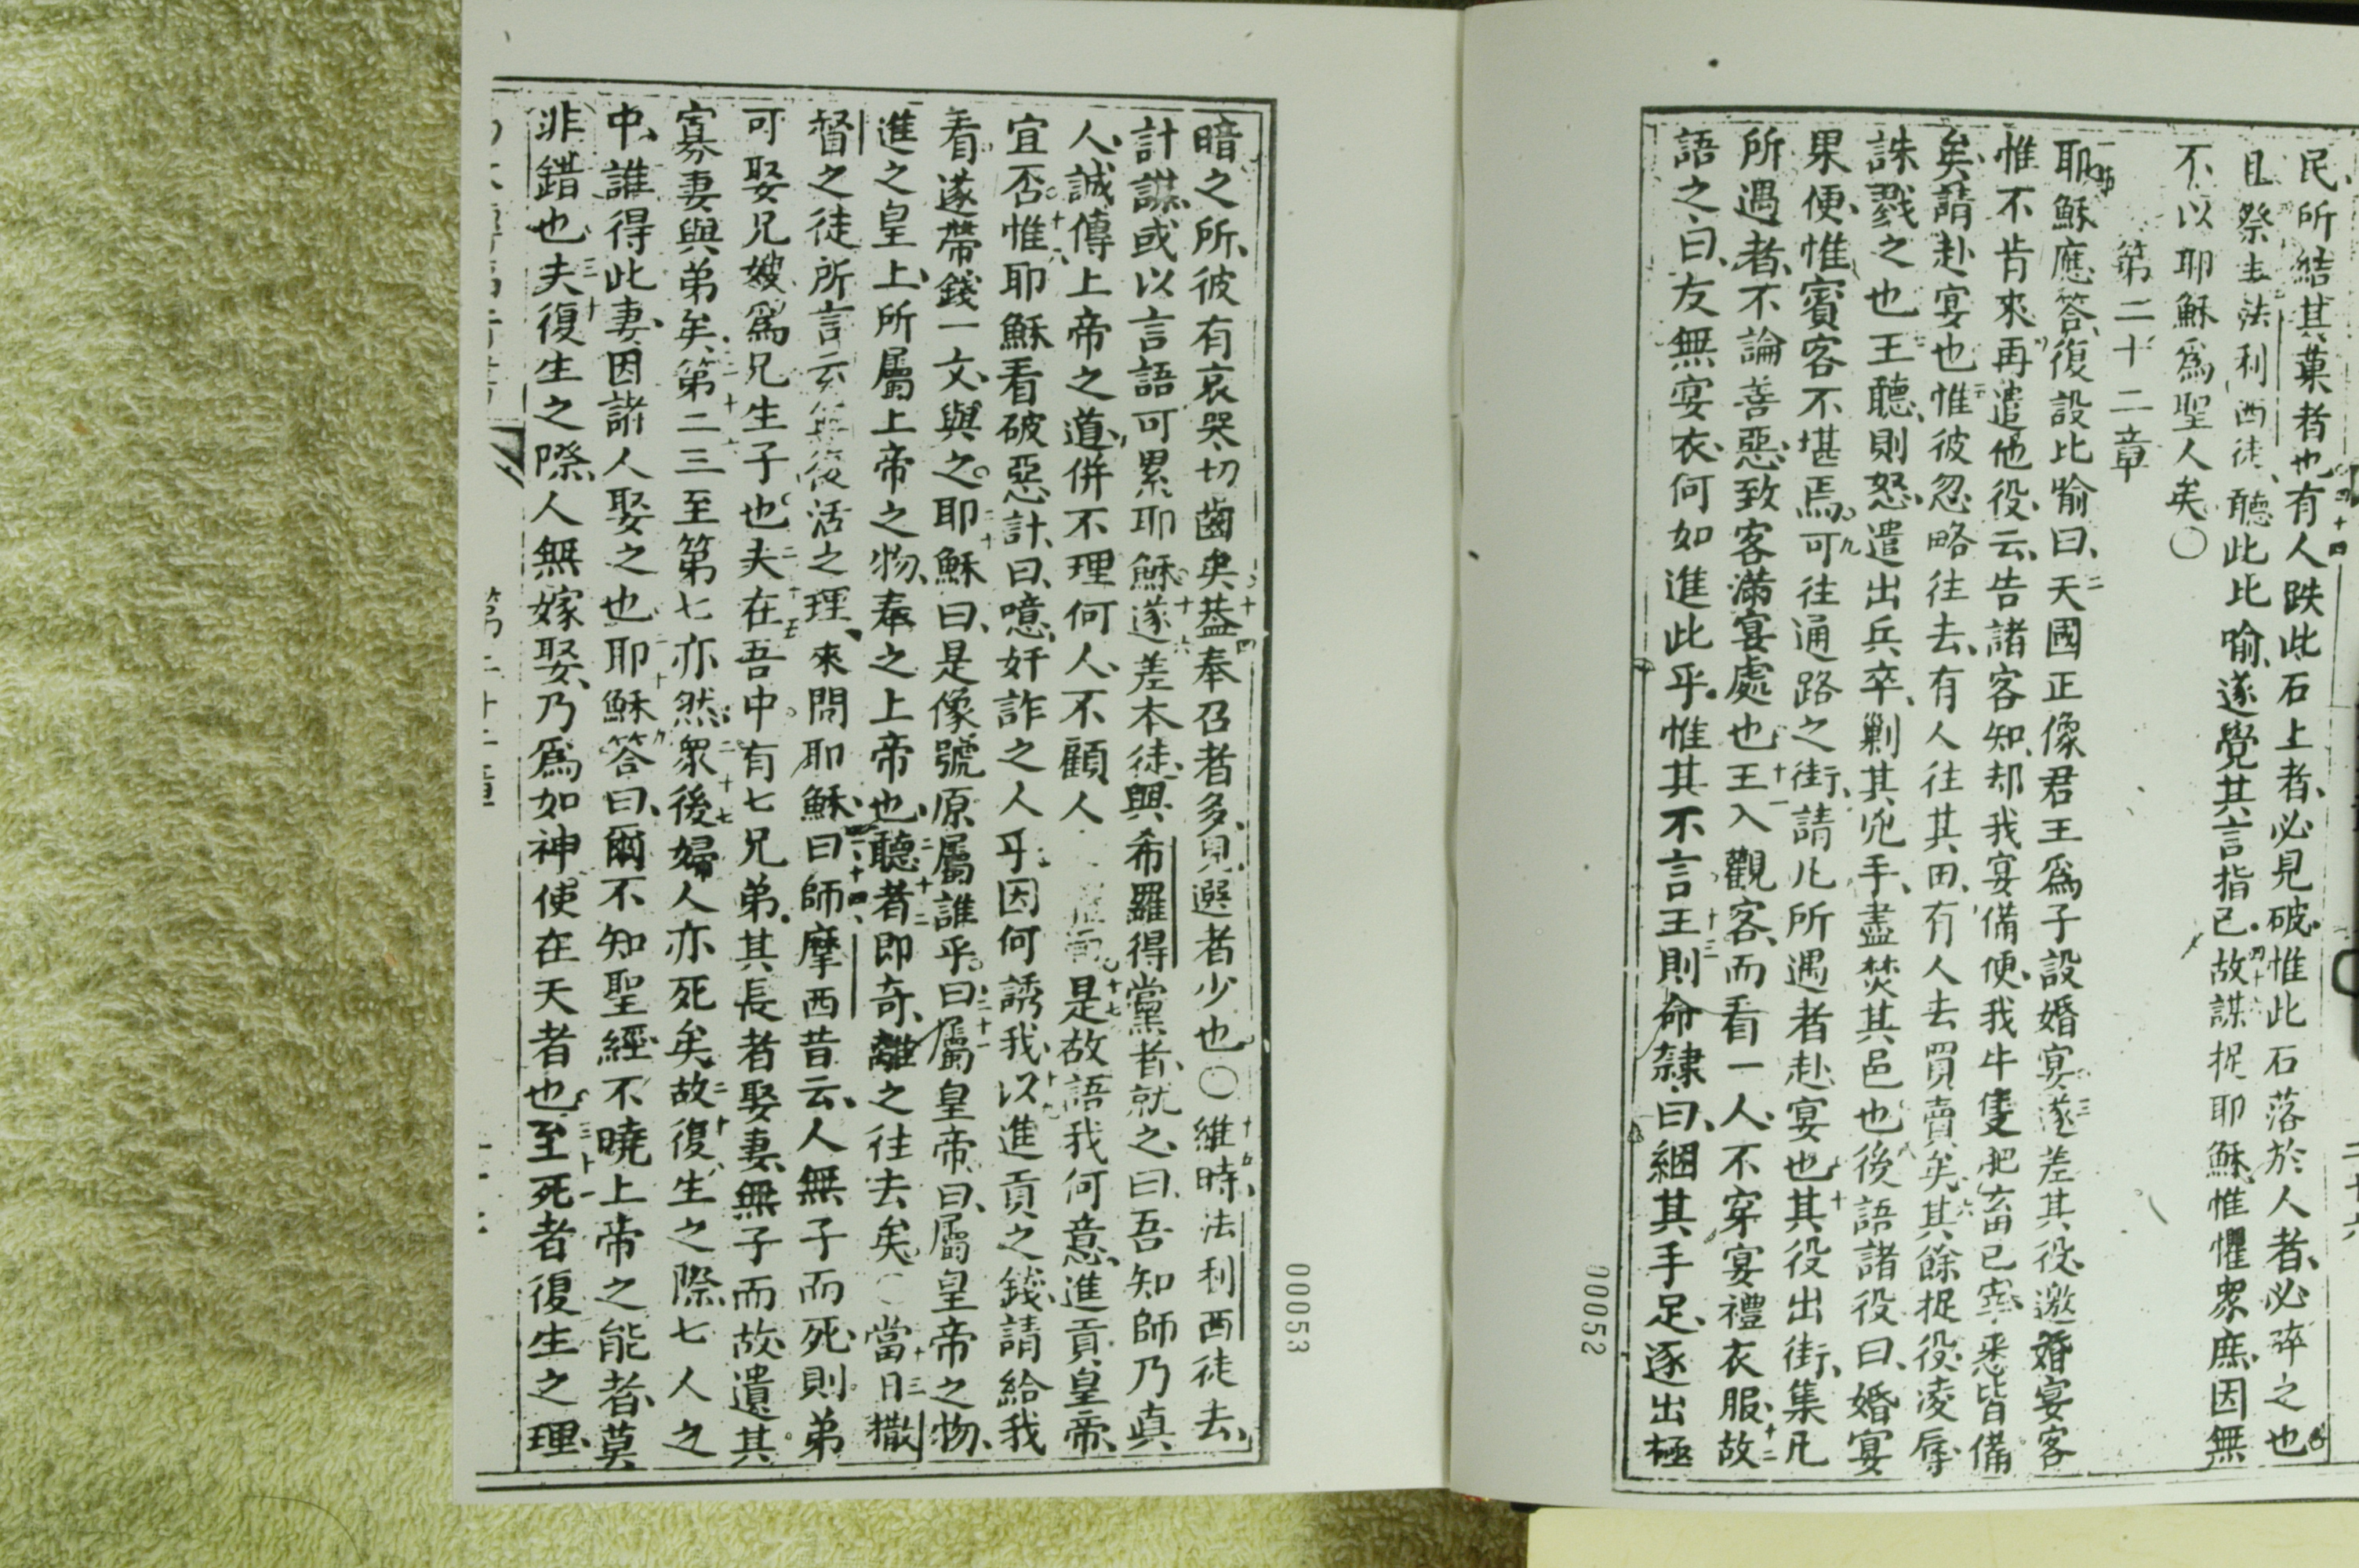 民、所結其菓者也。四十四有人跌此石上者、必見破。惟此石落於人者、必碎之也。
且祭主法利西徒、聽此比喻、遂覺其言指已。四十六故謀捉耶穌、惟懼眾庶、因無
不以耶穌爲聖人矣。〇
第二十二章
一節耶穌應答、復設比喻曰、二天國正像君王爲子設婚宴。三遂差其役、邀婚宴客
惟不肯來。再遣他役、云、告諸客知、却我宴備便、我牛隻肥畜已宰、悉皆備
矣、請赴宴也。五惟彼忽略往去、有人往其田、有人去買賣矣。六其餘捉役、凌辱
誅戮之也。王聽、則怒、遣出兵卒、剿其兇手、盡焚其邑也。八後語諸役曰、婚宴
果便、惟賓客不堪焉。九可往通路之街、請凡所遇者赴宴也。十其役出街、集凡
所遇者、不論善惡、致客滿宴處也。十一王入觀客、而看一人、不穿宴禮衣服、十二故
語之曰、友無宴衣、何如進此乎。惟其不言。十三王則命隸曰、綑其手足、逐出極
00052
暗之所、彼有哀哭切齒矣。十四葢奉召者多、見選者少也。〇十五維時、法利西徒去、
計謀、或以言語可累耶穌。十六遂差本徒、與希羅得黨者、就之曰、吾知師乃真
人、誠傳上帝之道、併不理何人、不顧人是。十七故語我何意、進貢皇帝、
宜否。十八惟耶穌看破惡計、曰、噫、奸詐之人乎、因何誘我、十九以進貢之錢、請給我
看、遂帶錢一文、與之。二十耶穌曰、是像號原屬誰乎。二十一曰、屬皇帝、曰、屬皇帝之物、
進之皇上、所屬上帝之物、奉之上帝也。二十二聽者即奇、離之往去矣。〇二十三當日撒
督之徒、所言云無復活之理、來問耶穌、二十四曰、師摩西昔云、人無子而死、則弟
可娶兄嫂、爲兄生子也。二十五夫在吾中、有七兄弟。其長者娶妻、無子而故、遺其
寡妻與弟矣。二十六第二三至第七亦然。二十七眾後、婦人亦死矣。二十八故復生之際、七人之
中、誰得此妻、因諸人娶之也。二十九耶穌答曰、爾不知聖經、不曉上帝之能者、莫
非錯也。三十夫復生之際、人無嫁娶、乃爲如神使在天者也。三十一至死者復生之理、
第二十二章
00053